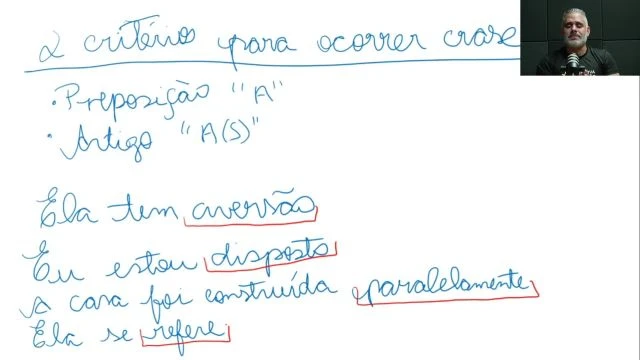 2 critérios para ocorrer crase
• Preposição "A"
• Artigo "A(S)"
Ela tem aversão
Eu estou disposto
A casa foi construída paralelamente
Ela se refere